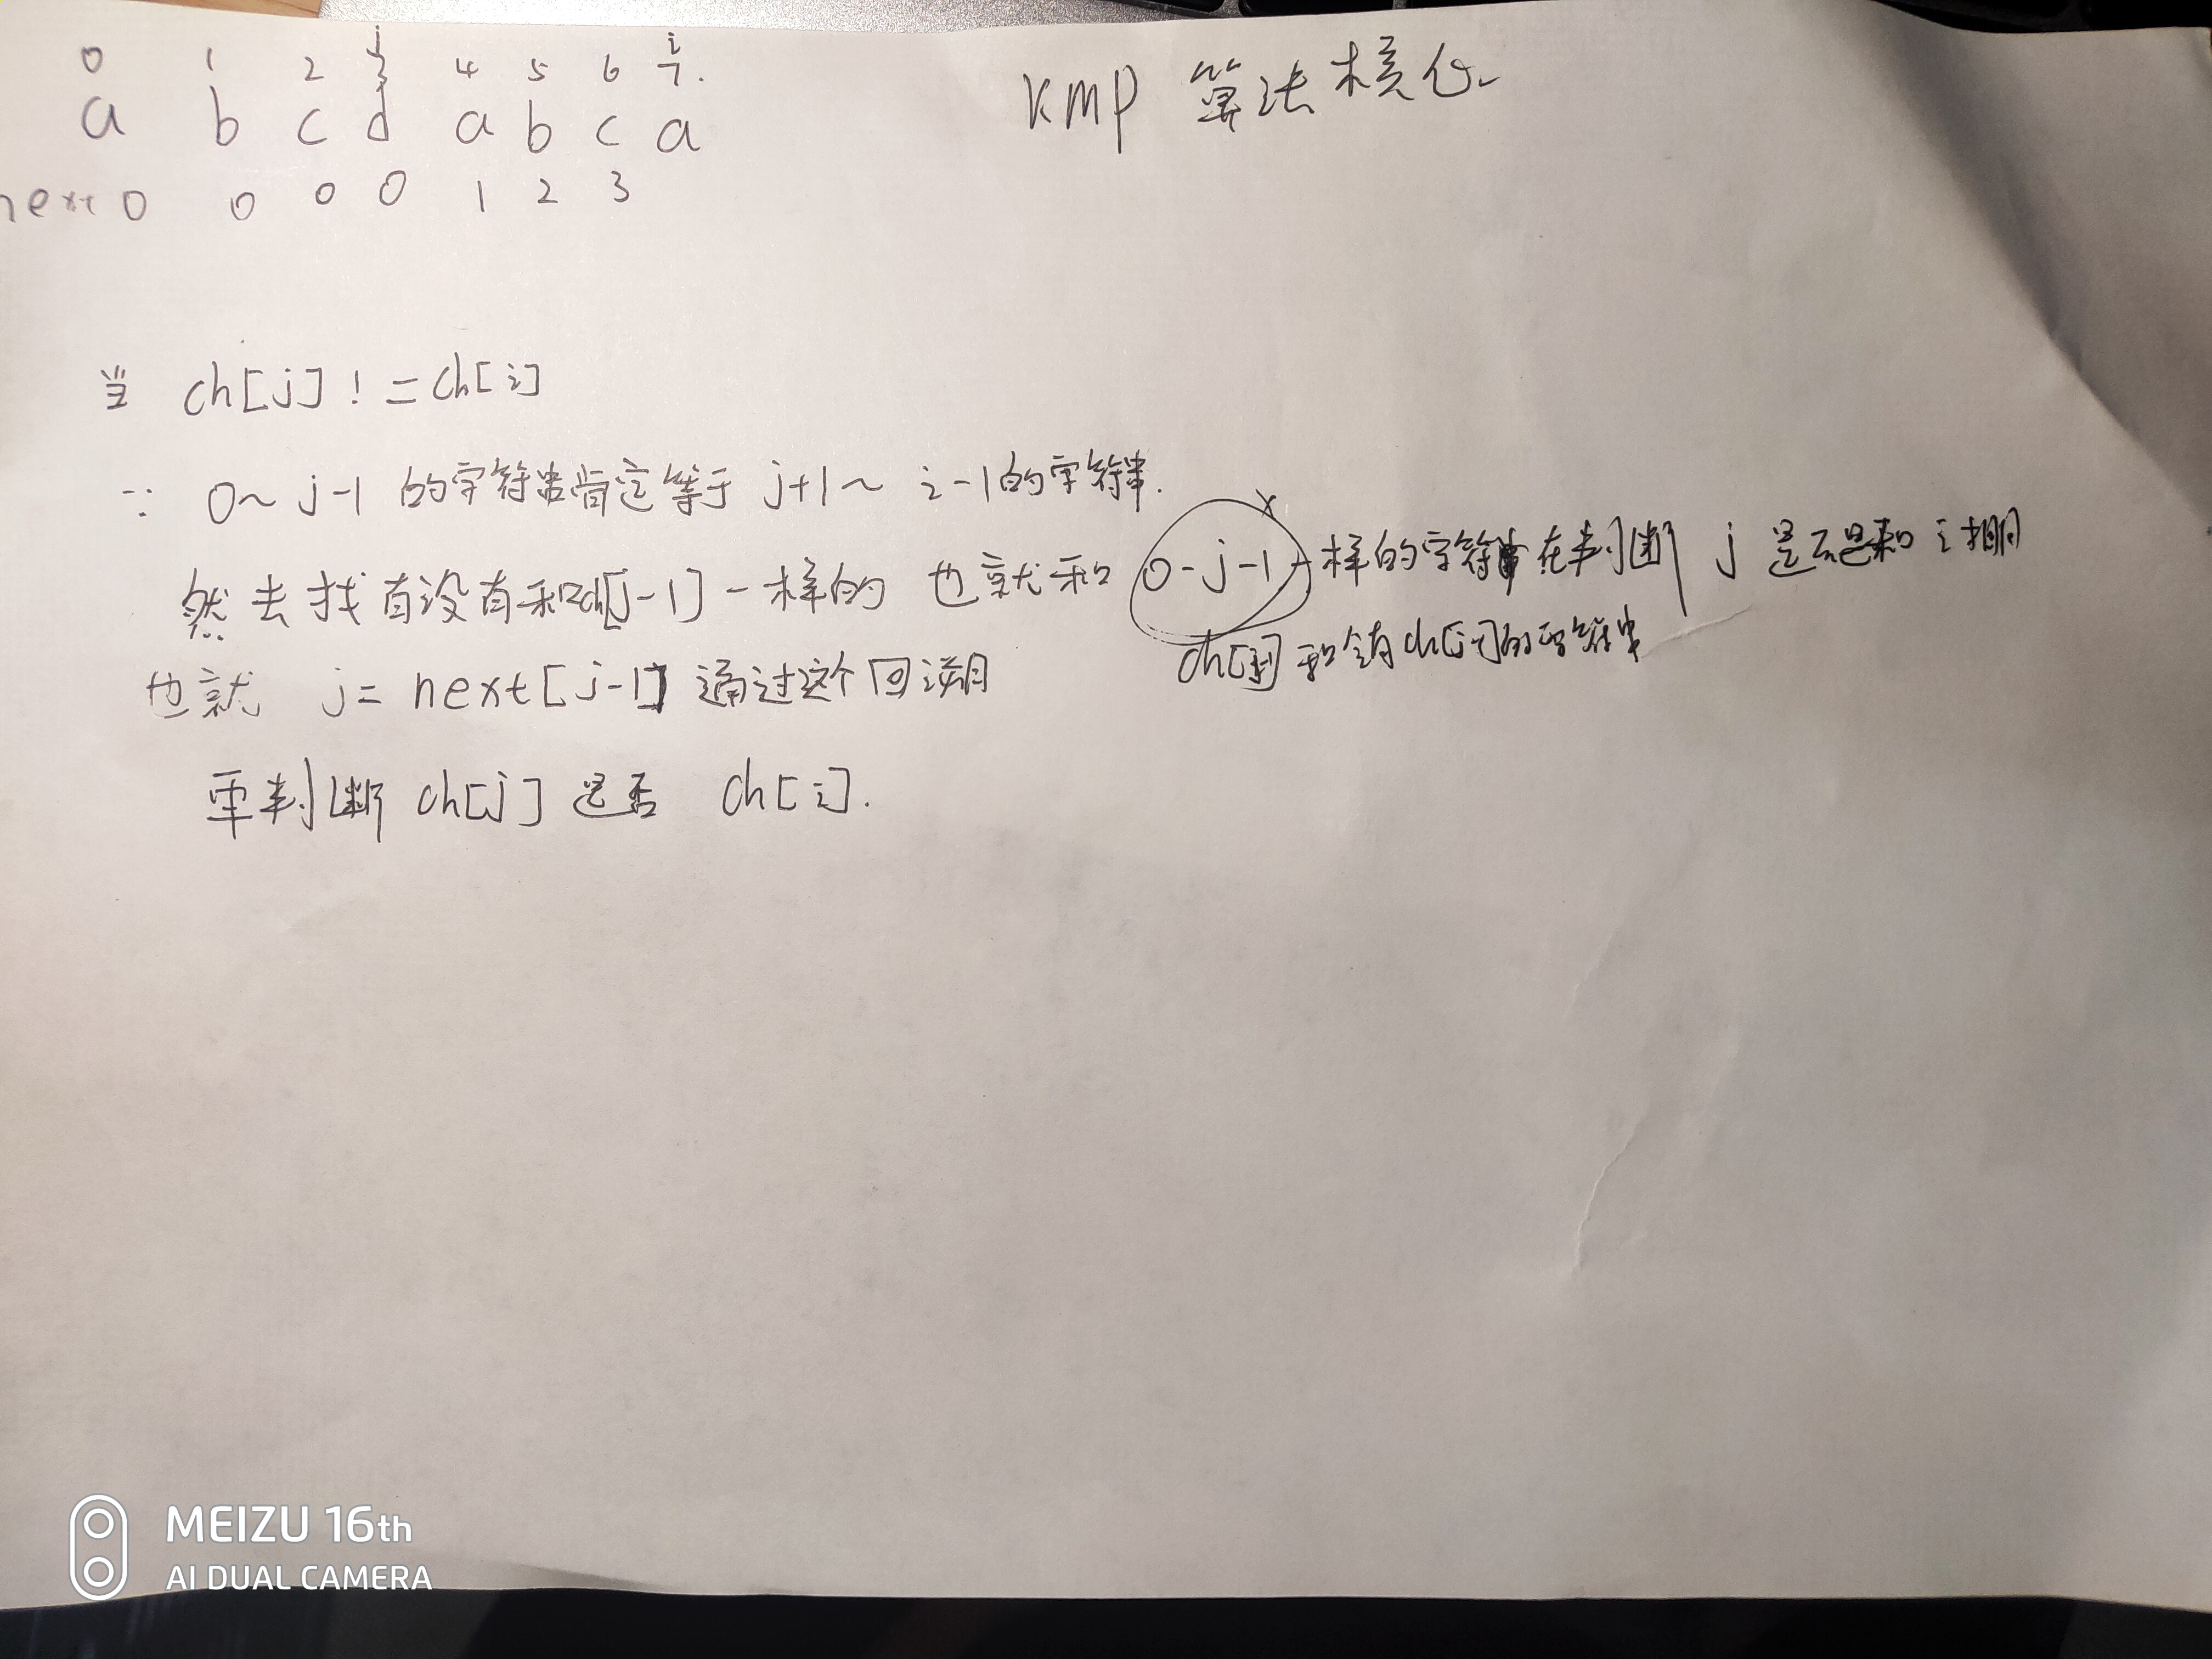 KMP 算法核心
j i
0 1 2 3 4 5 6 7.
a b c d a b c a
next 0 0 0 0 1 2 3
当 ch[j] != ch[i]
∵ 0~ j-1 的字符串肯定等于 j+1~ i-1的字符串.
x
然去找有没有和ch[j-1]一样的 也就和 0-j-1一样的字符串在判断 j 是不是和 i 相同
ch[] 和含有ch[j-1]的字符串
也就 j= next[j-1] 通过这个回溯
重判断 ch[j] 是否 ch[i].
MEIZU 16th
AI DUAL CAMERA